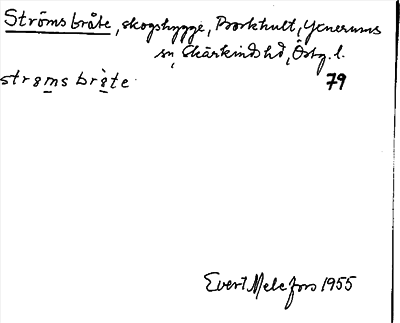 Strömsbråte, skogshygge, Borkhult, Yxnerums
sn, Skärkinds hd, Östg. l.
strøms bråte 79
Evert Melefors 1955